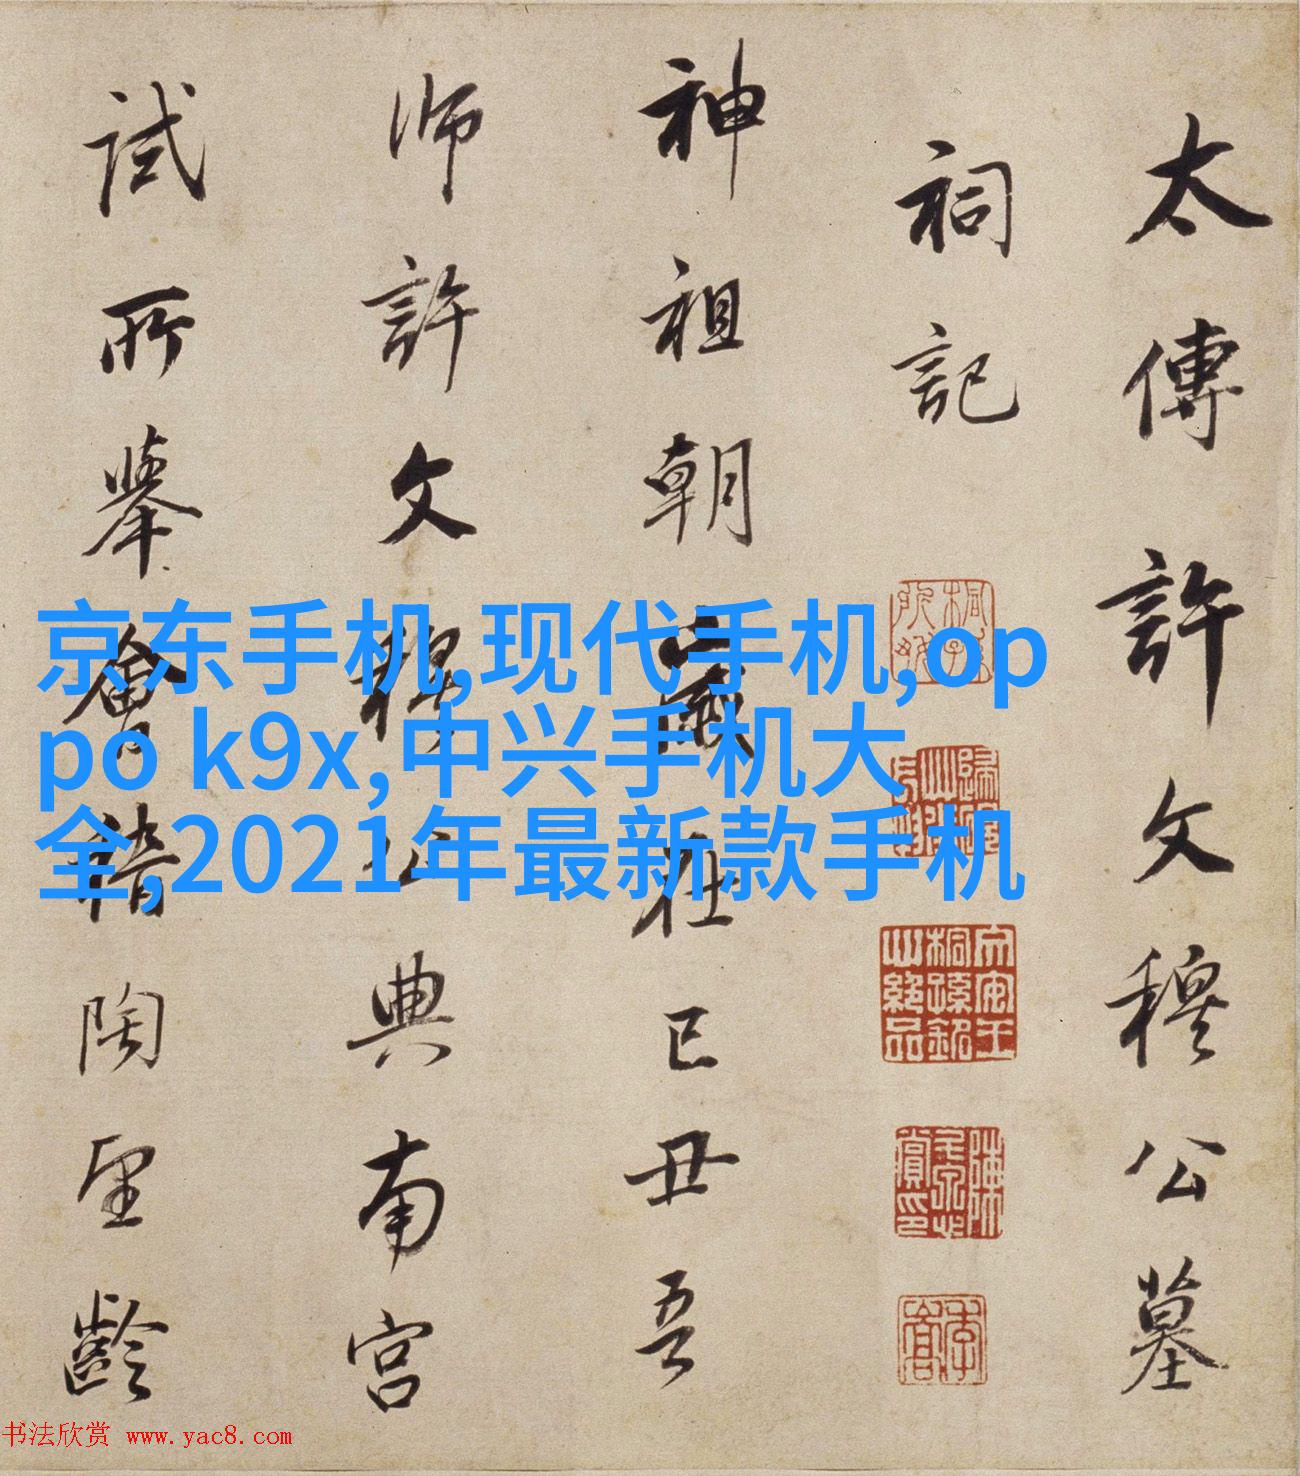 太傳許文穆公墓
祠記
神祖朝歲在己丑吾
師許文穆公典南宮
試所舉會稽陶望齡
京东手机,现代手机,op
po k9x,中兴手机大
全,2021年最新款手机
书法欣赏 www.yac8.com